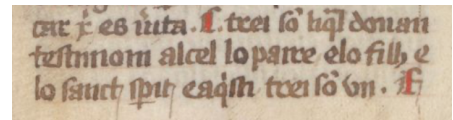 car xp̃ es ũita. E. trei sõ liql̃ donan
testimoni alcel lo paire elo filh, e
lo sanch sp̃it, eaq̃sti trei sõ vn. E